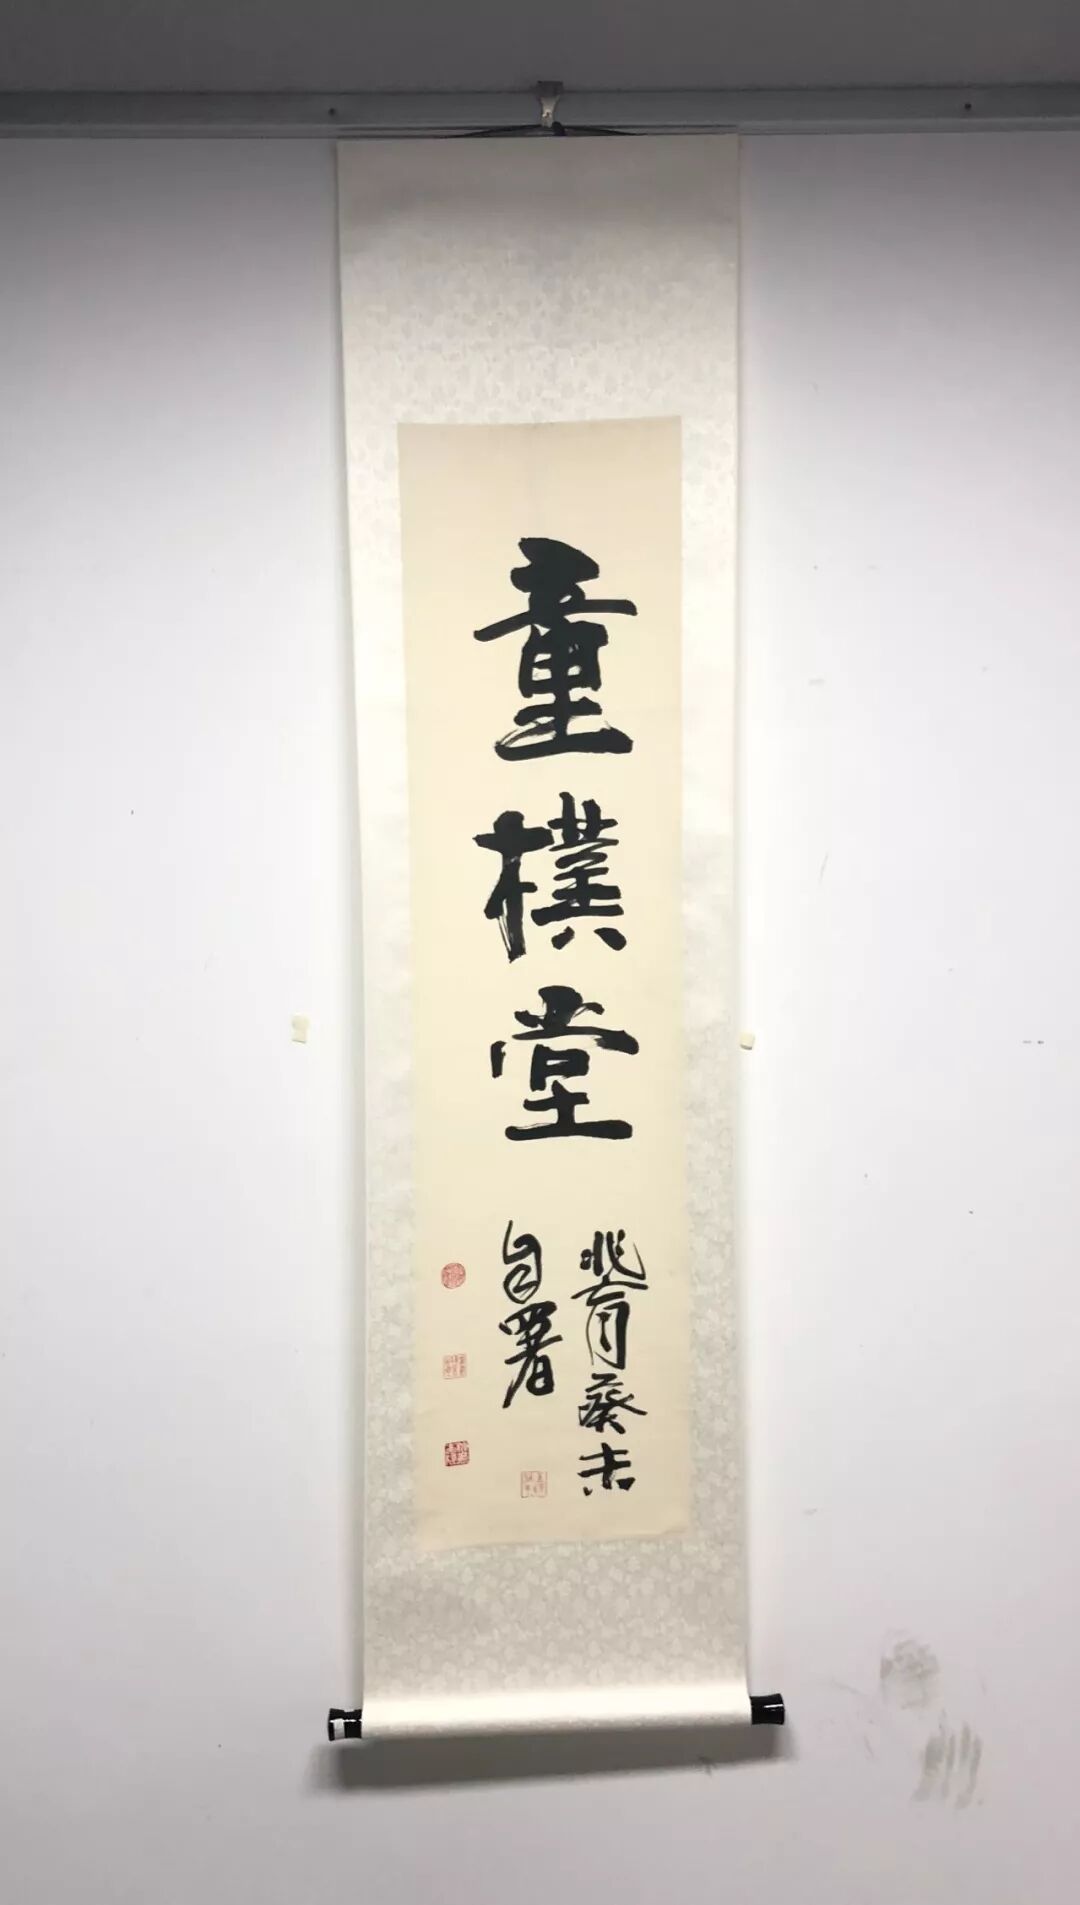 童樸堂
兆育癸未
自署